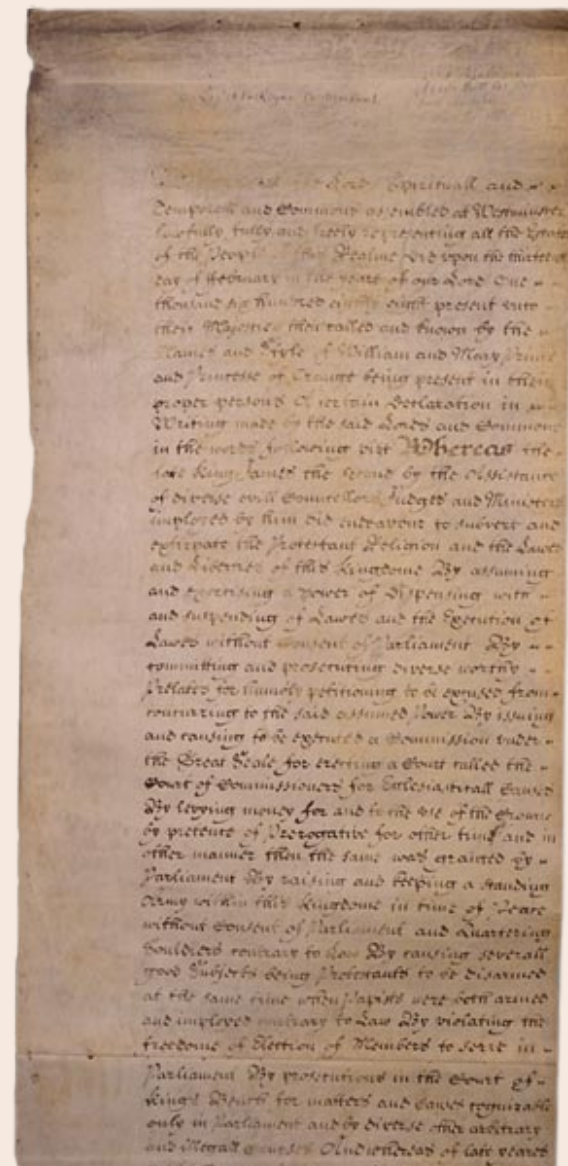 the Lords Spirituall and
Temporall and Commons assembled at Westminster
lawfully fully and freely representing all the Estates
of the People of this Realme did upon the thirteenth
day of February in the yeare of our Lord One
thousand six hundred eighty eight present unto
their Majesties then called and known by the
Names and Stile of William and Mary Prince
and Princesse of Orange being present in their
proper persons A certain Declaration in
Writing made by the said Lords and Commons
in the words following vizt Whereas the
late King James the second by the Assistance
of diverse evill Councellors Judges and Ministers
imployed by him did endeavour to subvert and
extirpate the Protestant Religion and the Lawes
and Liberties of this Kingdome By assuming
and exercising a power of Dispensing with
and suspending of Lawes and the Execution of
Lawes without Consent of Parliament By
committing and prosecuting diverse worthy
Prelates for humbly petitioning to be excused from
concurring to the said assumed Power By issuing
and causing to be executed a Commission under
the Great Seale for erecting a Court called the
Court of Commissioners for Ecclesiasticall Causes
By levying money for and to the use of the Crowne
by pretence of Prerogative for other time and in
other manner then the same was granted by
Parliament By raising and keeping a standing
Army within this Kingdome in time of Peace
without Consent of Parliament and Quartering
Souldiers contrary to Law By causing severall
good Subjects being Protestants to be disarmed
at the same time when Papists were both armed
and imployed contrary to Law By violating the
freedome of Election of Members to serve in
Parliament By prosecutions in the Court of
Kings Bench for matters and Causes cognizable
only in Parliament and by diverse other arbitrary
and illegall Courses And whereas of late yeares